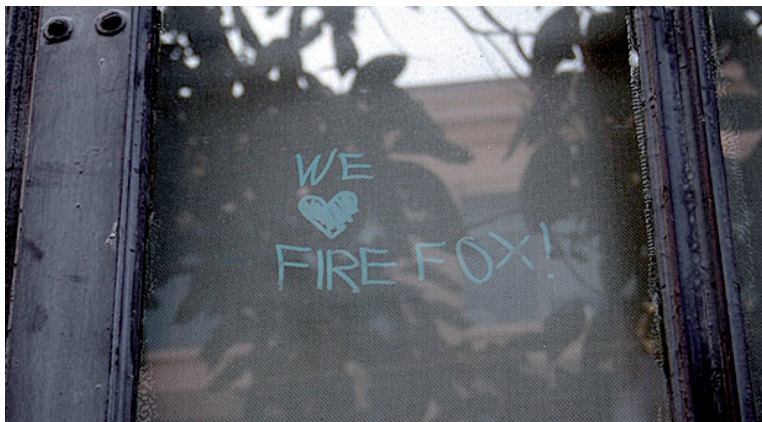 WE
♥
FIRE FOX!